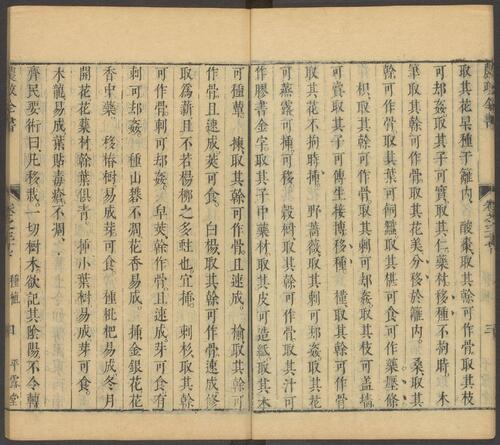 取其花杲種于籬内 酸棗取其幹可作骨取其枝
可却姦取其子可實取其仁藥材移種不拘時 木
筆取其幹可作骨取其花美分移於籬内 桑取其
幹可作骨取其葉可飼蠶取其椹可食可作藥壓條
枳取其幹可作骨取其刺可却姦取其枝可蓋墻
可賣取其子可傳生接博移種 槿取其幹可作骨
取其花不拘時揷 野薔薇取其刺可却姦取其花
可蒸露可揷可移 穀樹取其幹可作骨取其汁可
作膠書金字取其子中藥材取其皮可造紙取其木
可種蕈 楝取其幹可作骨且速成 榆取其幹可
作骨且速成莢可食 白楊取其幹可作骨速成條
取爲薪且不若楊柳之多蛀也宜揷 刺杉取其幹
可作骨刺可却姦 皁莢幹可作骨且速成芽可食有
刺可却姦 種山礬不凋花香易成 揷金銀花花
香中藥 移椿樹易成芽可食 種枇杷易成冬月
開花花藥材幹葉俱青 揷小葉樹易成芽可食
木龍易成葉貼毒瘡不凋
齊民要術曰凡移栽一切樹木欲記其陰陽不令轉
農政全書
種植
平露堂